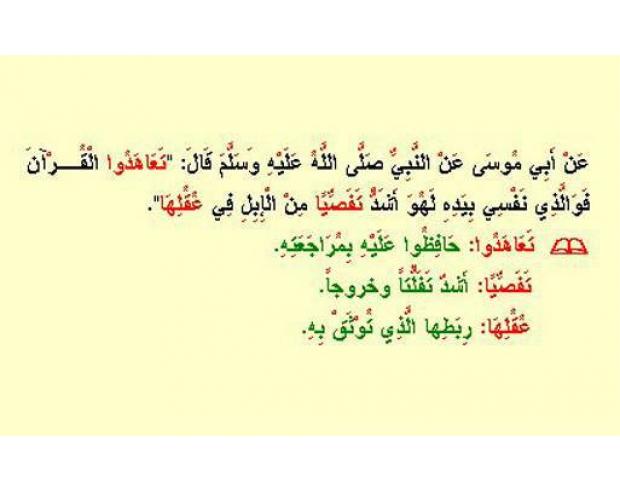 عَنْ أَبِي مُوسَى عَنْ النَّبِيِّ صَلَّى اللَّهُ عَلَيْهِ وَسَلَّمَ قَالَ: "تَعَاهَدُوا الْقُـــرْآنَ
فَوَالَّذِي نَفْسِي بِيَدِهِ لَهُوَ أَشَدُّ تَفَصِّيًا مِنْ الْإِبِلِ فِي عُقُلِهَا".
تَعَاهَدُوا: حَافِظُوا عَلَيْهِ بِمُرَاجَعَتِهِ.
تَفَصِّيًا: أَشَدُّ تَفَلُّتَاً وخروجاً.
عُقُلِهَا: رِبَطِها الَّذِي تُوْثَقْ بِهِ.